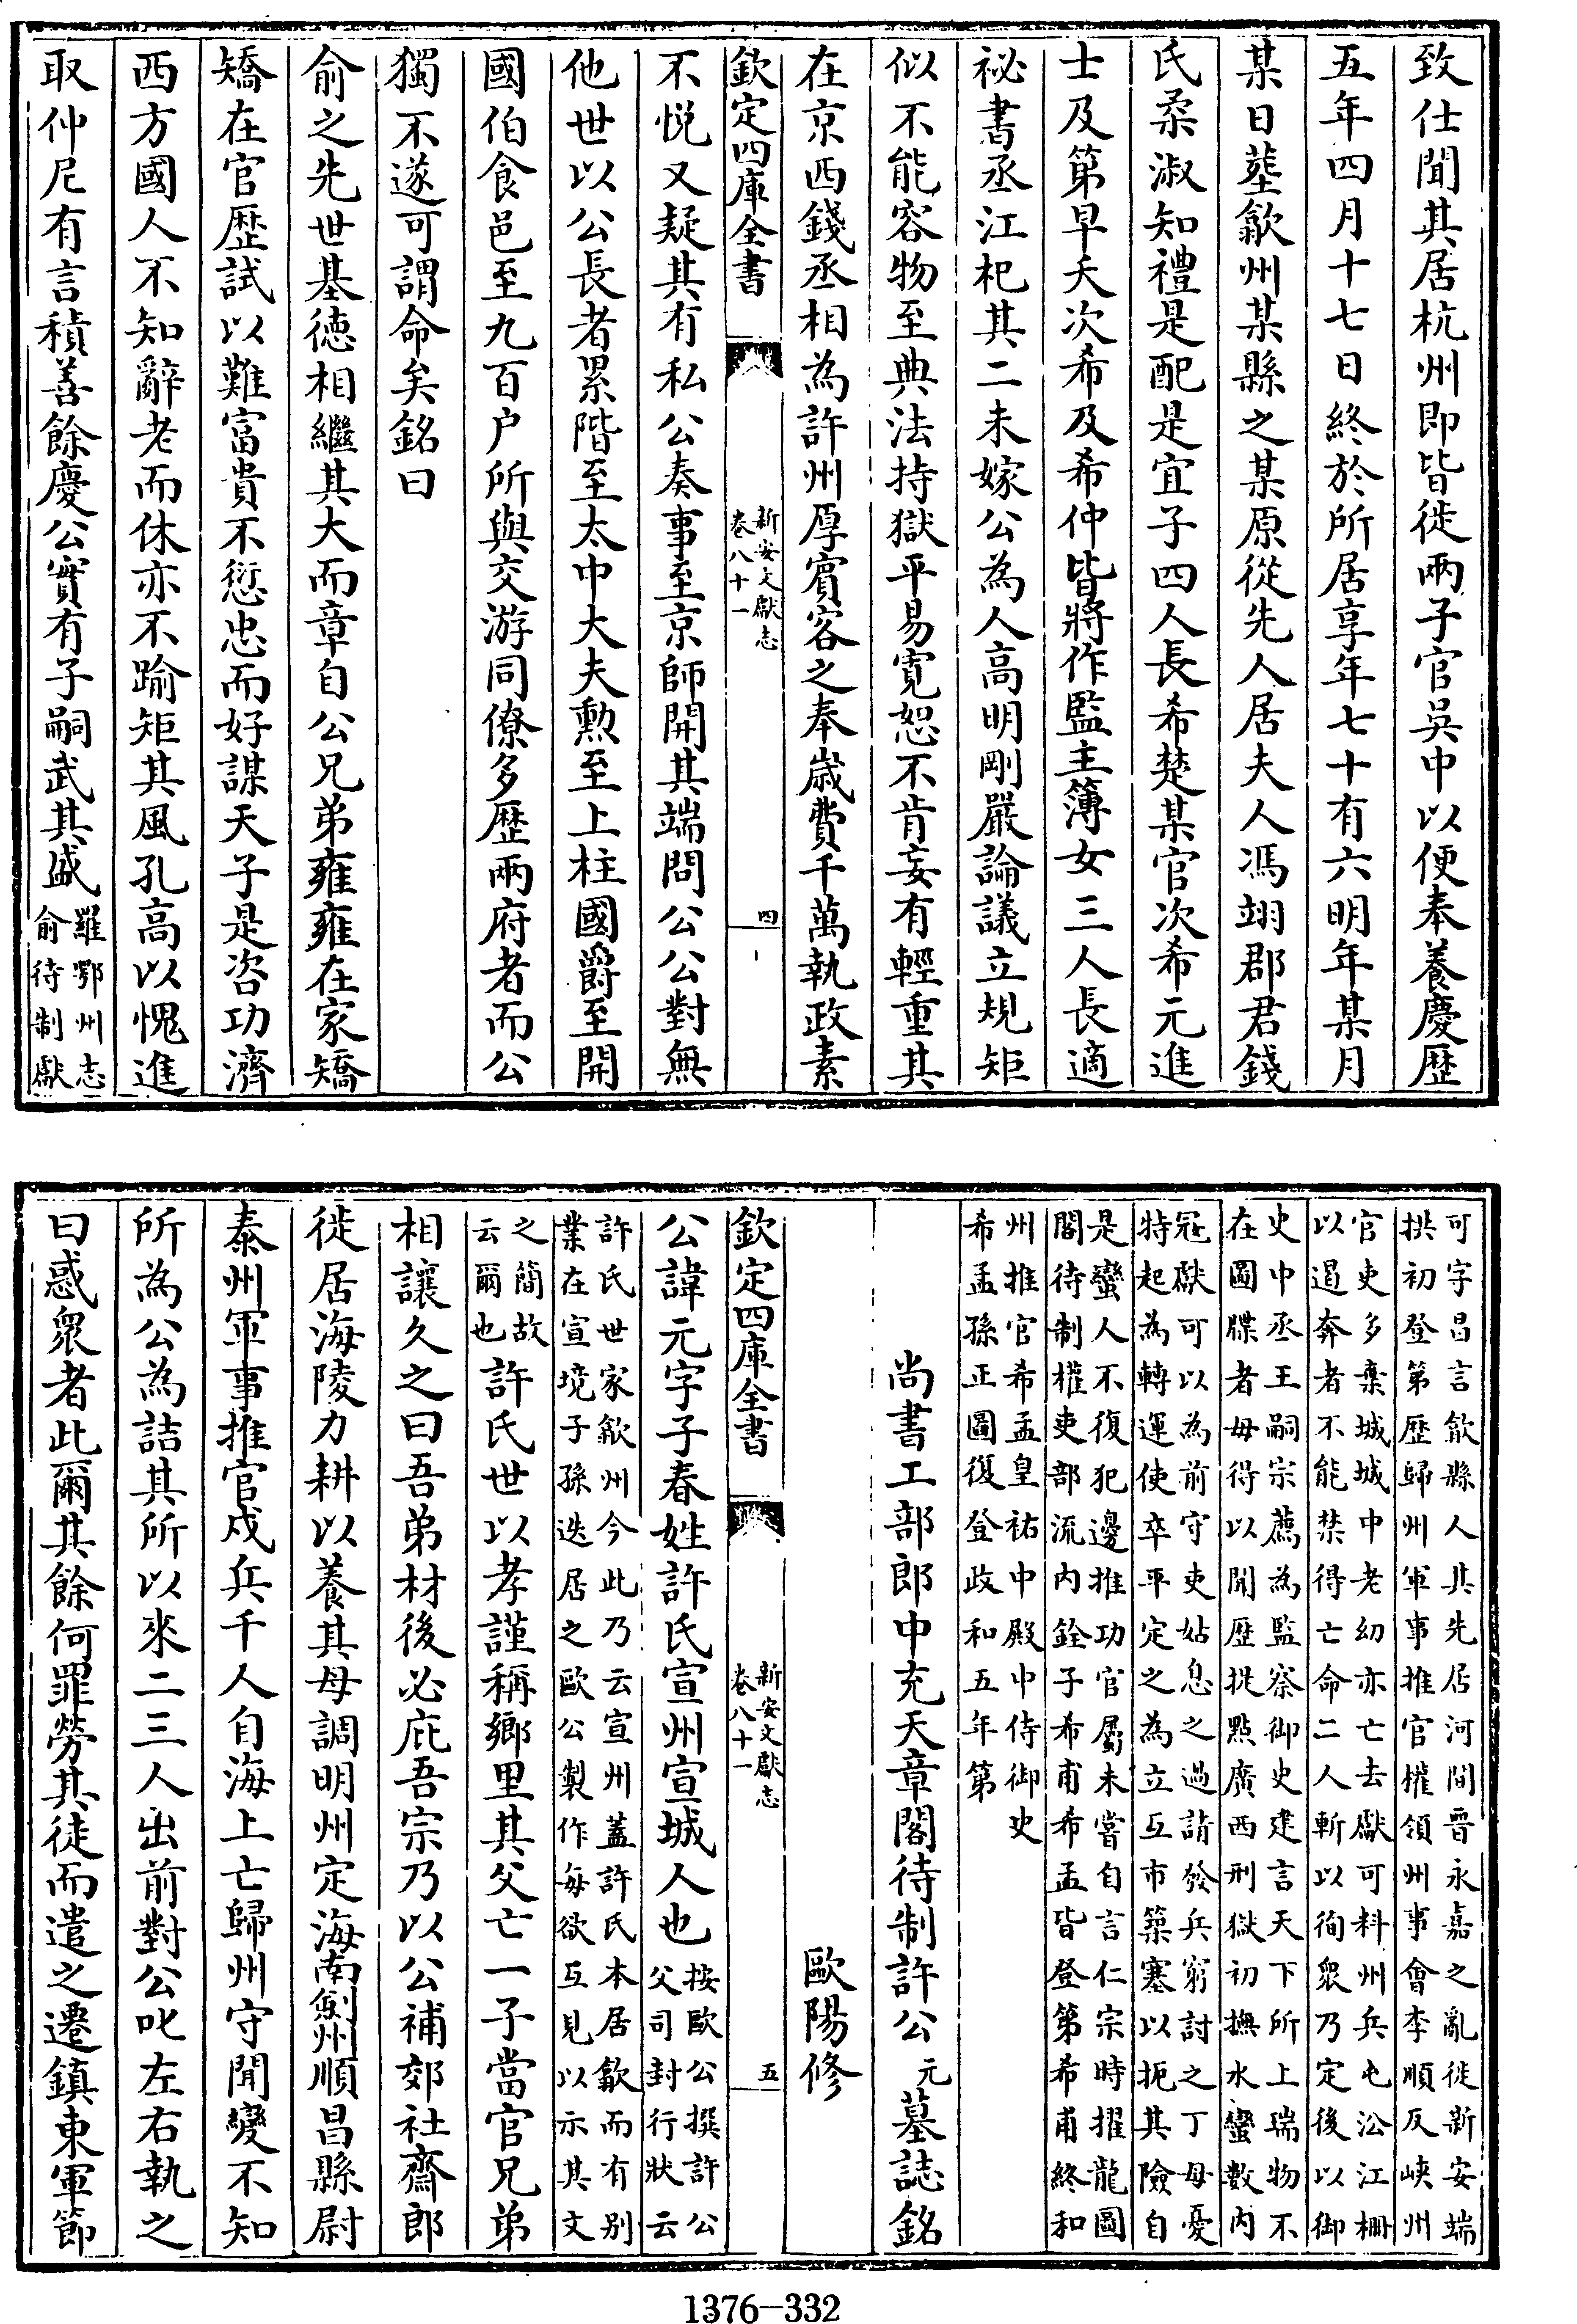 致仕聞其居杭州即皆徙兩子官吳中以便奉養慶歴
五年四月十七日終於所居享年七十有六明年某月
某日塟歙州某縣之某原從先人居夫人馮翊郡君錢
氏柔淑知禮是配是宜子四人長希楚某官次希元進
士及第早夭次希及希仲皆將作監主簿女三人長適
祕書丞江杞其二未嫁公為人高明剛嚴論議立規矩
似不能容物至典法持獄平易寛恕不肯妄有輕重其
在京西錢丞相為許州厚賓客之奉嵗費千萬執政素
欽定四庫全書
新安文獻志
卷八十一
四
不悦又疑其有私公奏事至京師開其端問公公對無
他世以公長者累階至太中大夫勲至上柱國爵至開
國伯食邑至九百户所與交游同僚多歴兩府者而公
獨不遂可謂命矣銘曰
俞之先世基徳相繼其大而章自公兄弟雍雍在家矯
矯在官歴試以難富貴不愆忠而好謀天子是咨功濟
西方國人不知辭老而休亦不踰矩其風孔高以愧進
取仲尼有言積善餘慶公實有子嗣武其盛羅鄂州志
俞待制獻
可字昌言歙縣人其先居河間晋永嘉之亂徙新安端
拱初登第歴歸州軍事推官權領州事會李順反峽州
官吏多棄城城中老幼亦亡去獻可料州兵屯㳂江柵
以遏奔者不能禁得亡命二人斬以徇衆乃定後以御
史中丞王嗣宗薦為監察御史建言天下所上瑞物不
在圖牒者毋得以聞歴提點廣西刑獄初撫水蠻數内
冦獻可以為前守吏姑息之過請發兵窮討之丁母憂
特起為轉運使卒平定之為立互市築塞以扼其險自
是蠻人不復犯邊推功官屬未嘗自言仁宗時擢龍圖
閣待制權吏部流内銓子希甫希孟皆登第希甫終和
州推官希孟皇祐中殿中侍御史
希孟孫正圖復登政和五年第
尚書工部郎中充天章閣待制許公元墓誌銘
歐陽修
欽定四庫全書
新安文獻志
卷八十一
五
公諱元字子春姓許氏宣州宣城人也按歐公撰許公
父司封行狀云
許氏世家歙州今此乃云宣州蓋許氏本居歙而有别
業在宣境子孫迭居之歐公製作毎欲互見以示其文
之簡故
云爾也許氏世以孝謹稱鄉里其父亡一子當官兄弟
相讓久之曰吾弟材後必庇吾宗乃以公補郊社齋郎
徙居海陵力耕以養其母調明州定海南劍州順昌縣尉
泰州軍事推官戍兵千人自海上亡歸州守聞變不知
所為公為詰其所以來二三人出前對公叱左右執之
曰惑衆者此爾其餘何罪勞其徒而遣之遷鎮東軍節
1376-332